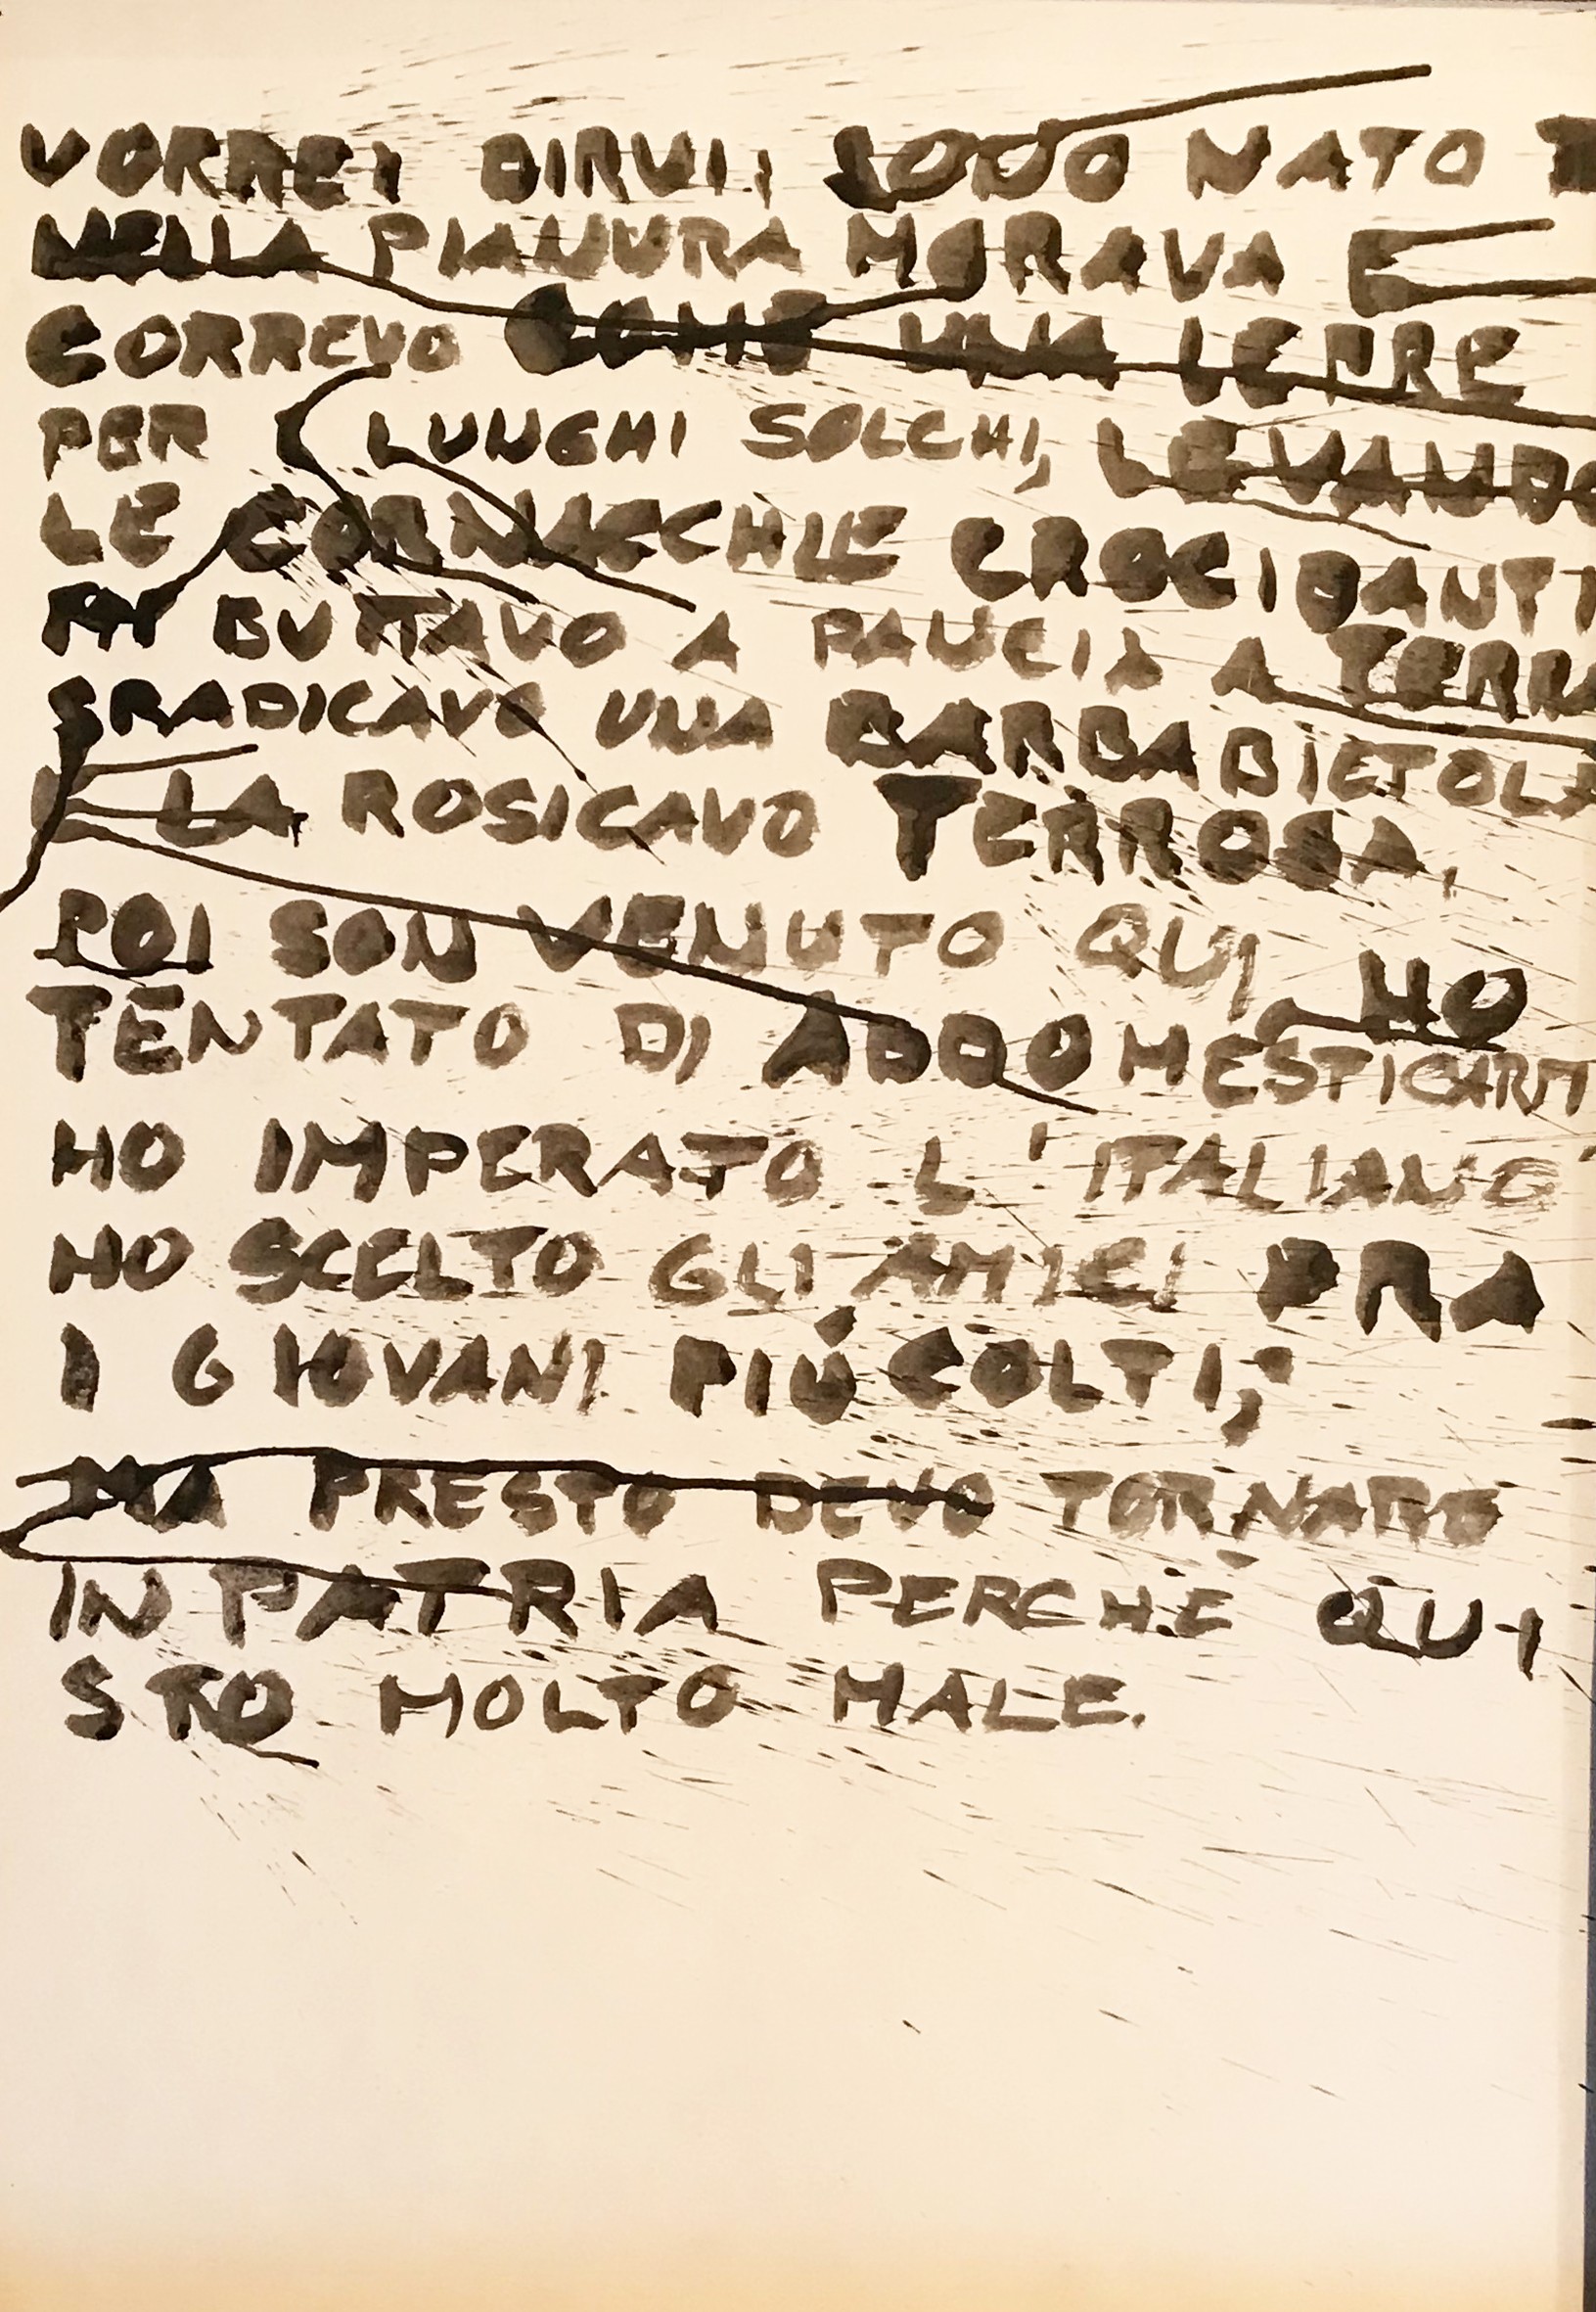 VORREI DIRVI: SONO NATO
NELLA PIANURA MORAVA E
CORREVO COME UNA LEPRE
PER I LUNGHI SOLCHI, LEVANDO
LE CORNACCHIE CROCIDANTI
MI BUTTAVO A PANCIA A TERRA
SRADICAVO UNA BARBABIETOLA
E LA ROSICAVO TERROSA.
POI SON VENUTO QUI, HO
TENTATO DI ADDOMESTICARMI
HO IMPERATO L'ITALIANO
HO SCELTO GLI AMICI FRA
I GIOVANI PIÚ COLTI;
MA PRESTO DEVO TORNARE
IN PATRIA PERCHÉ QUI
STO MOLTO MALE.